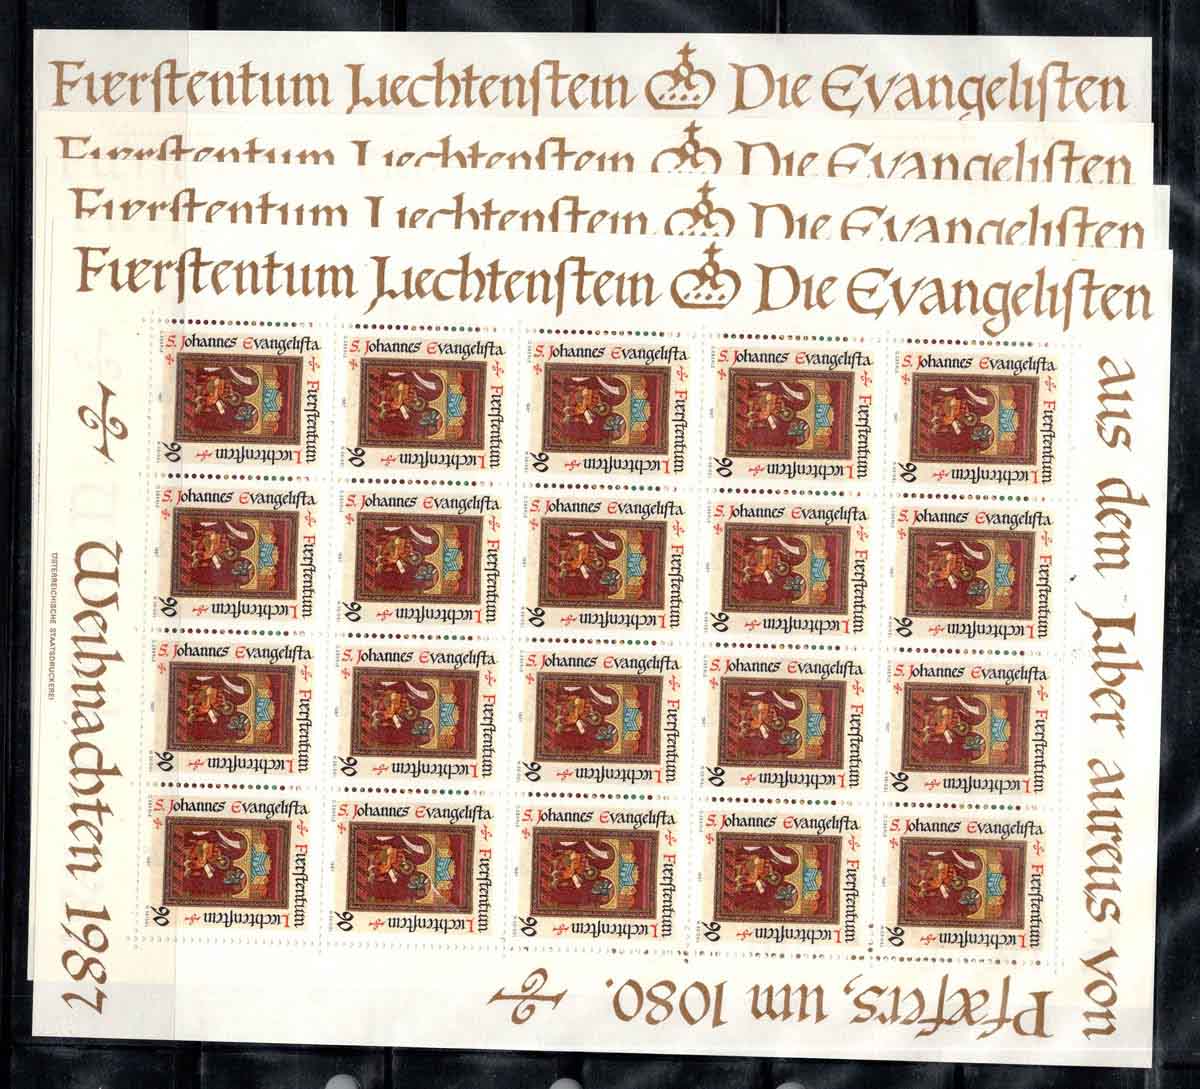 Fuerstentum Liechtenstein Die Evangelisten
Fuerstentum Liechtenstein Die Evangelisten
Fuerstentum Liechtenstein Die Evangelisten
Fuerstentum Liechtenstein Die Evangelisten
aus dem Liber aureus von
Pfæfers, um 1080.
Weihnachten 1987
ÖSTERREICHISCHE STAATSDRUCKEREI
S. Johannes Evangelista
Fuerstentum
Liechtenstein
90
S. Johannes Evangelista
Fuerstentum
Liechtenstein
90
S. Johannes Evangelista
Fuerstentum
Liechtenstein
90
S. Johannes Evangelista
Fuerstentum
Liechtenstein
90
S. Johannes Evangelista
Fuerstentum
Liechtenstein
90
S. Johannes Evangelista
Fuerstentum
Liechtenstein
90
S. Johannes Evangelista
Fuerstentum
Liechtenstein
90
S. Johannes Evangelista
Fuerstentum
Liechtenstein
90
S. Johannes Evangelista
Fuerstentum
Liechtenstein
90
S. Johannes Evangelista
Fuerstentum
Liechtenstein
90
S. Johannes Evangelista
Fuerstentum
Liechtenstein
90
S. Johannes Evangelista
Fuerstentum
Liechtenstein
90
S. Johannes Evangelista
Fuerstentum
Liechtenstein
90
S. Johannes Evangelista
Fuerstentum
Liechtenstein
90
S. Johannes Evangelista
Fuerstentum
Liechtenstein
90
S. Johannes Evangelista
Fuerstentum
Liechtenstein
90
S. Johannes Evangelista
Fuerstentum
Liechtenstein
90
S. Johannes Evangelista
Fuerstentum
Liechtenstein
90
S. Johannes Evangelista
Fuerstentum
Liechtenstein
90
S. Johannes Evangelista
Fuerstentum
Liechtenstein
90